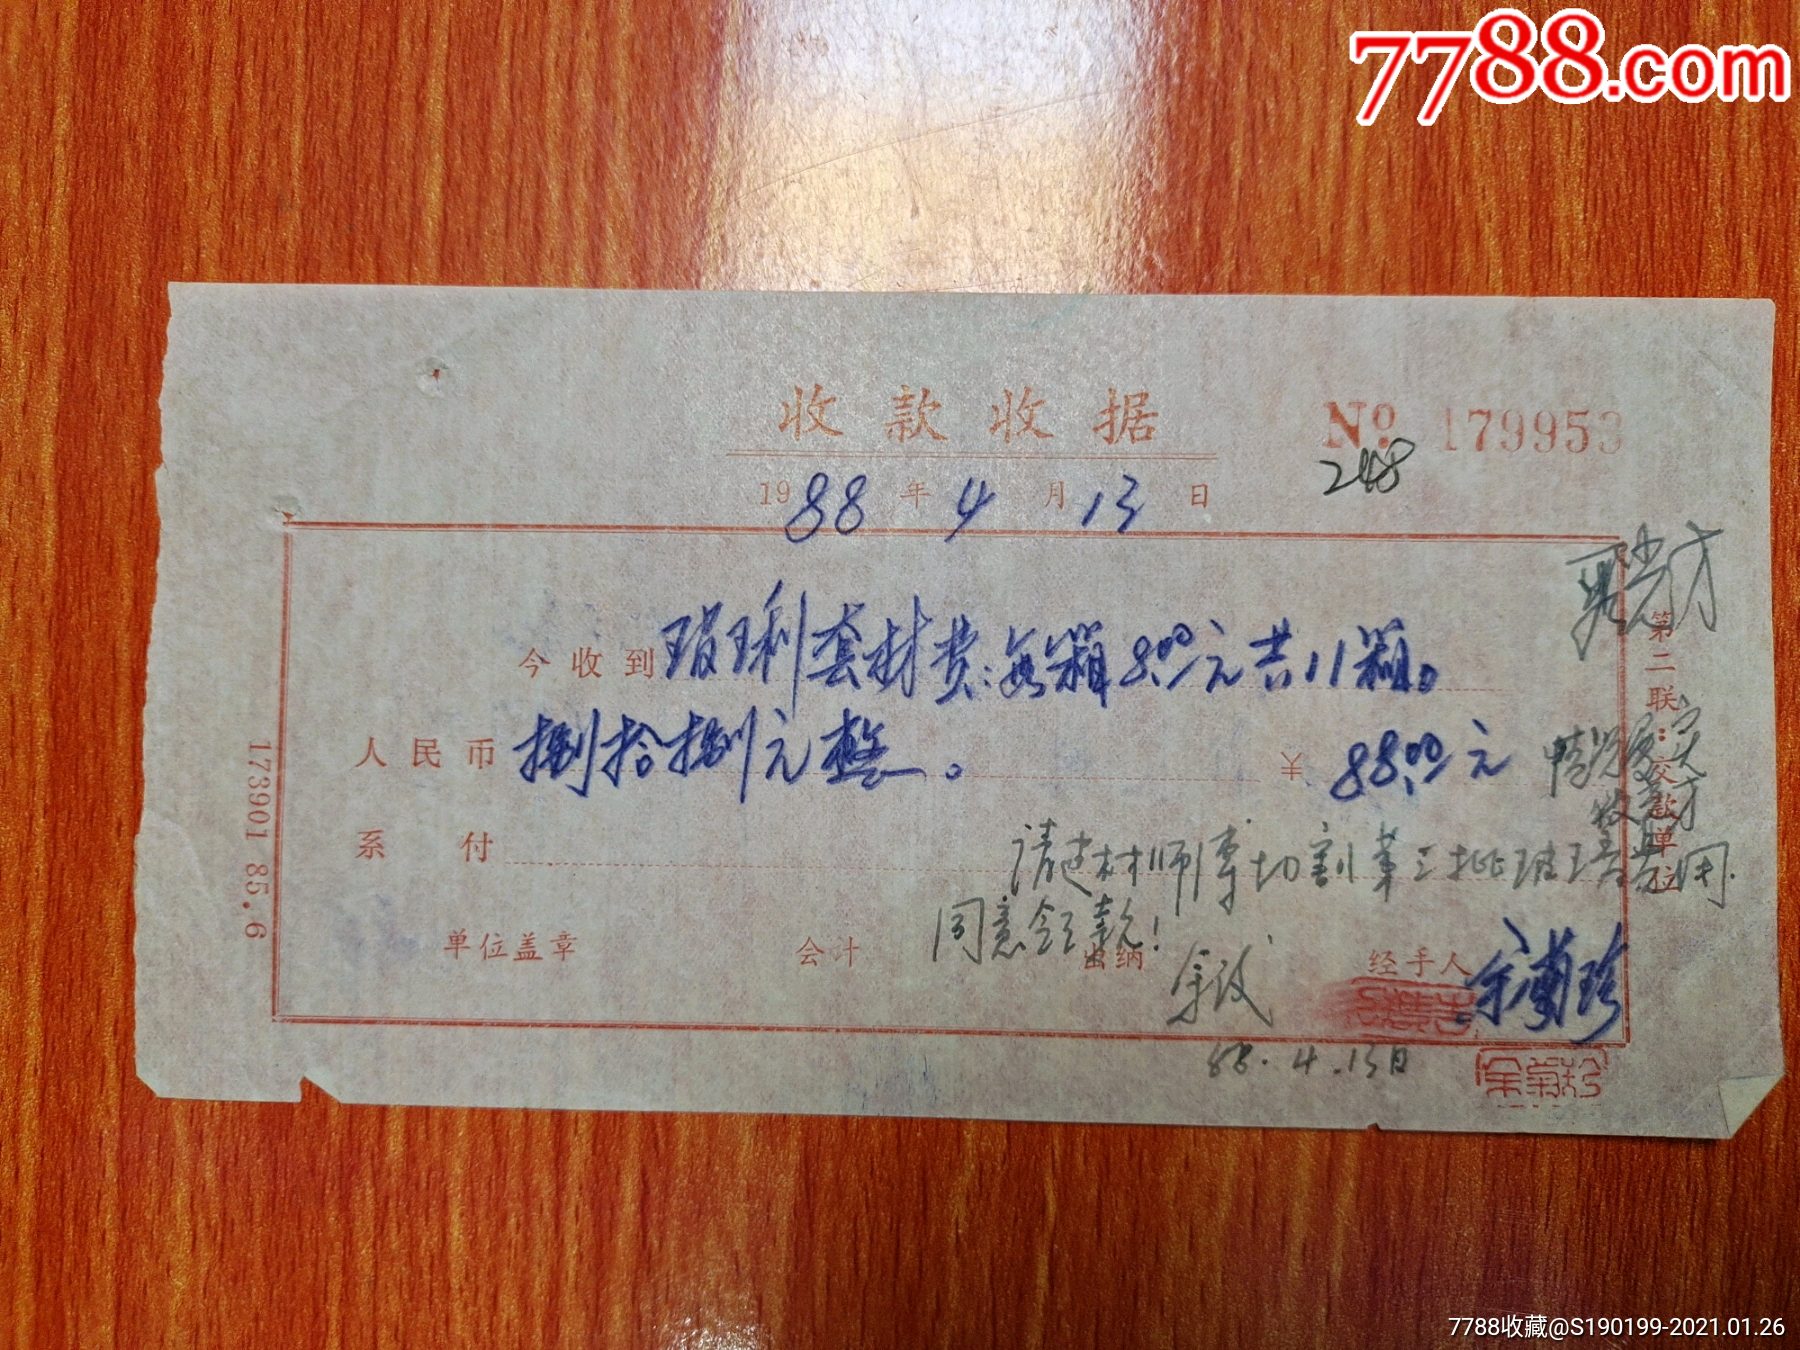 7788.com
收款收据
No 179953
248
1988年4月13日
今收到玻璃套材费:每箱8.00元共11箱。
人民币捌拾捌元整。 ¥ 88.00元
系付
请建材师傅切割第三排玻璃
同意领款!
单位盖章 会计 出纳 经手人
88.4.13日
第二联:交款单位
173901 85.6
7788收藏@S190199-2021.01.26